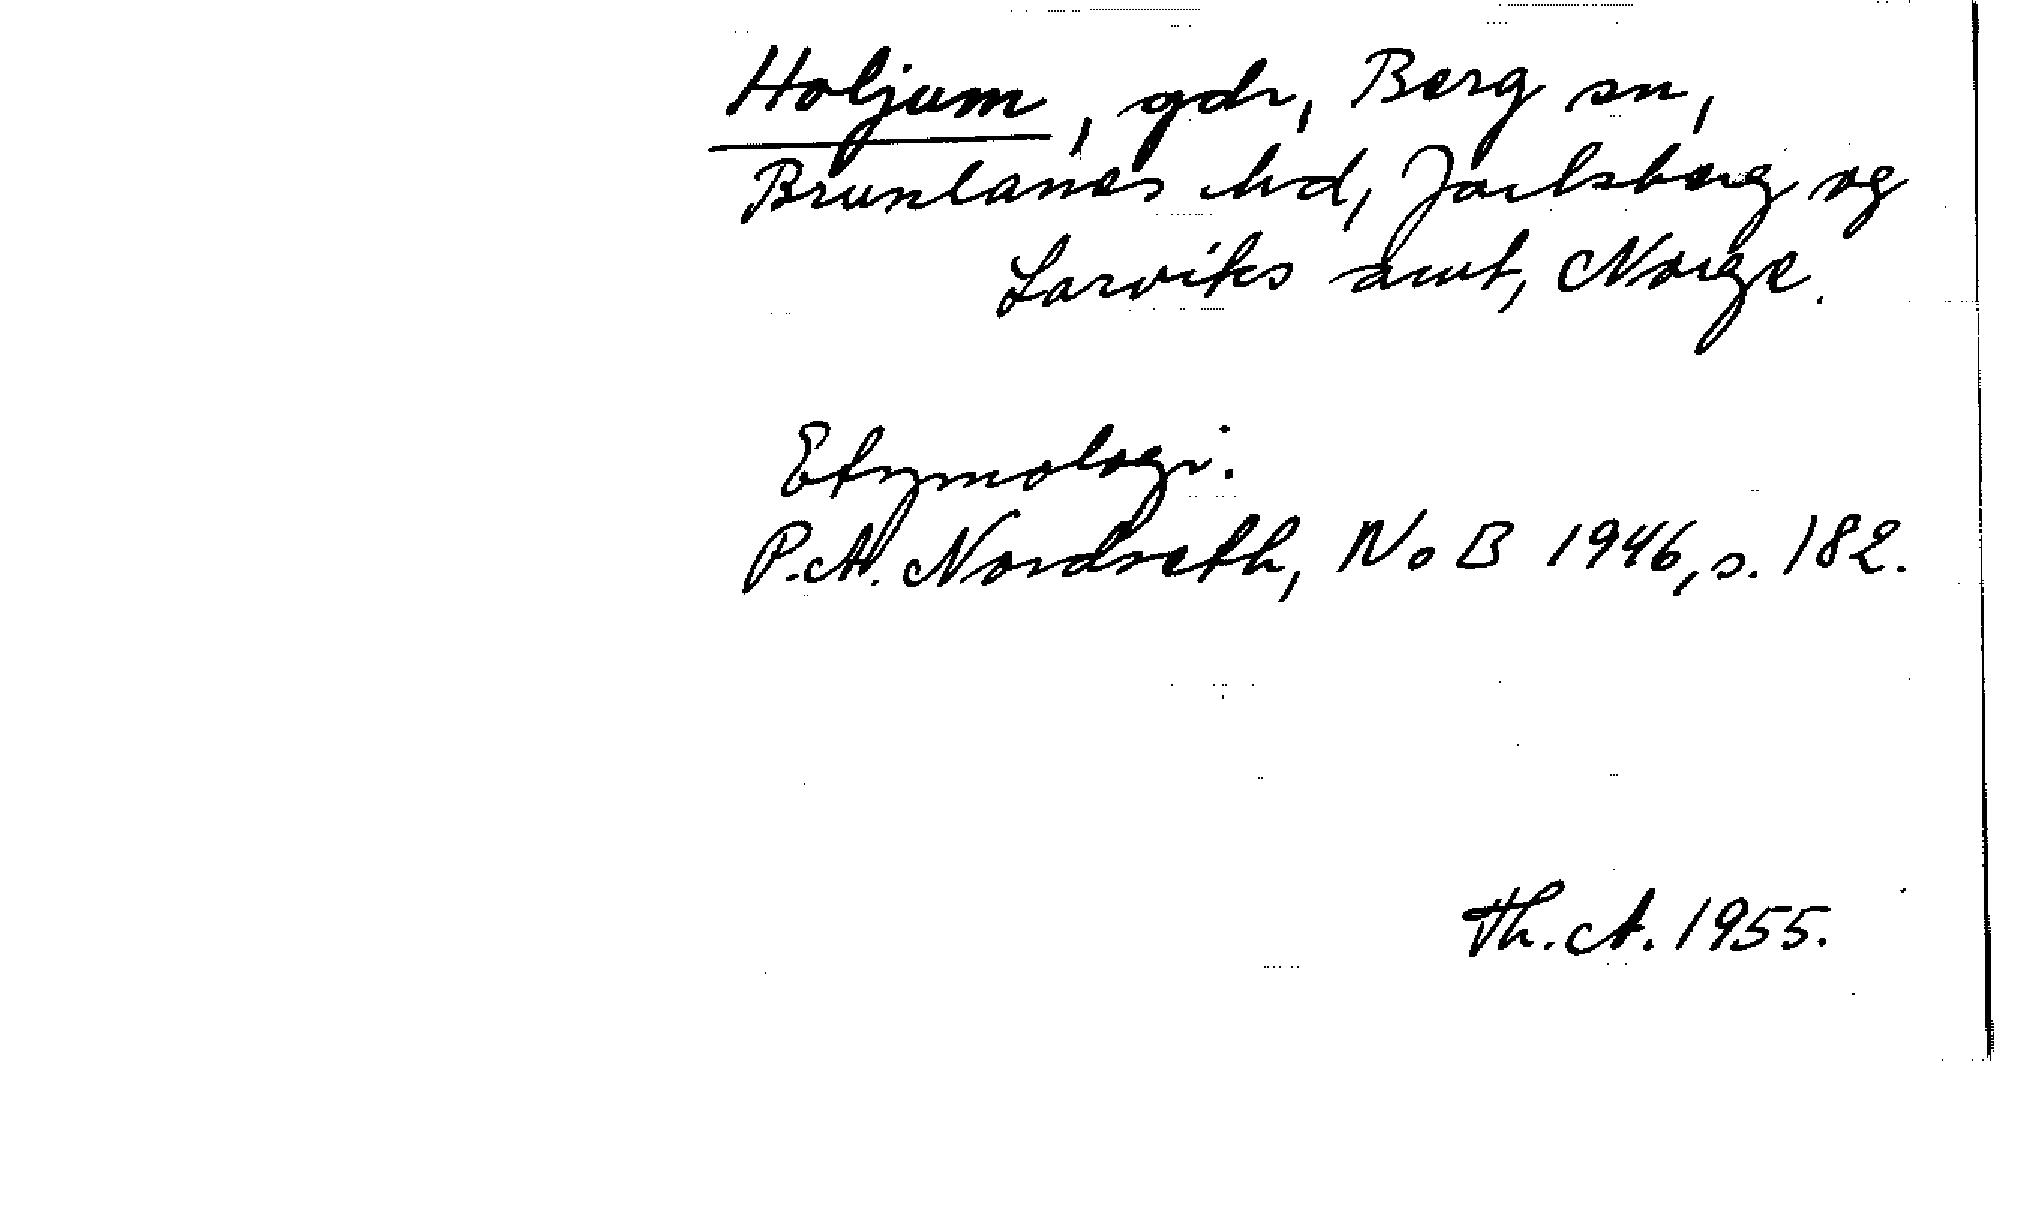 Holjum, gdr, Berg sn,
Brunlanes hd, Jarlsberg og
Larviks amt, Norge.
Etymologi.
P.A. Nordseth, NoB 1946, s. 182.
Th. A. 1955.